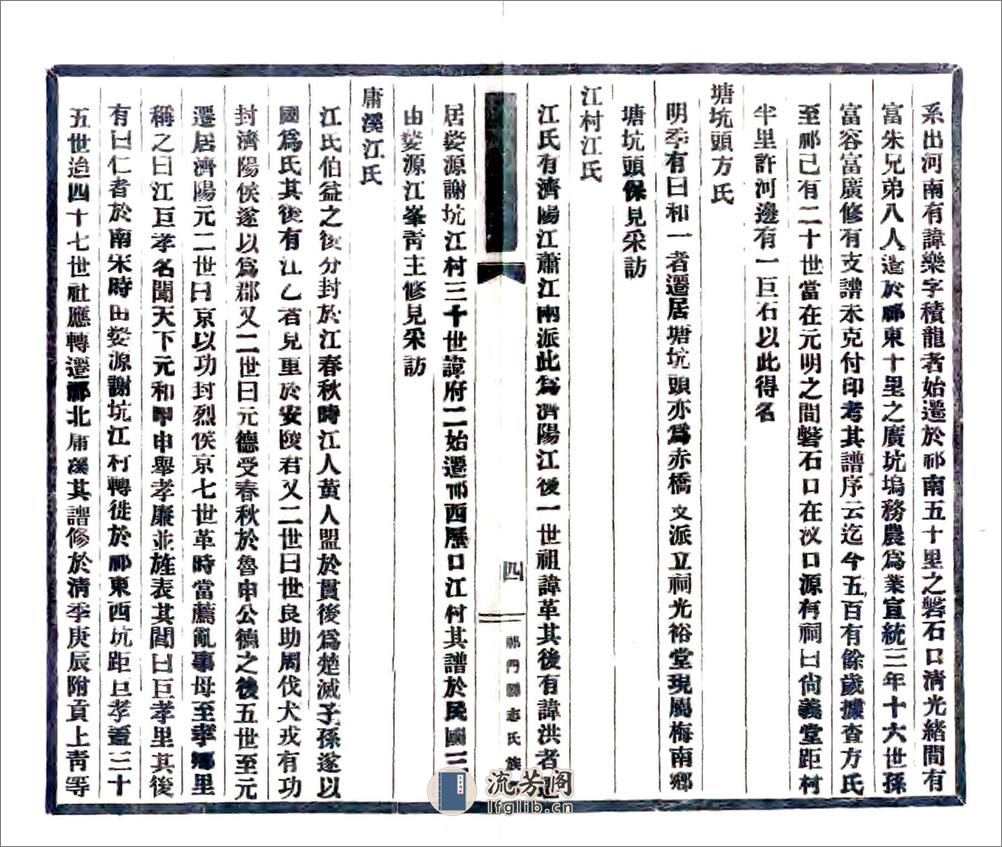 系出河南有諱樂字積龍者始遷於祁南五十里之磐石口清光緒間有
富朱兄弟八人遷於祁東十里之廣坑塢務農爲業宣統三年十六世孫
富容富廣修有支譜未克付印考其譜序云迄今五百有餘歲據查方氏
至祁已有二十世當在元明之間磐石口在汊口源有祠曰尙義堂距村
半里許河邊有一巨石以此得名
塘坑頭方氏
明季有曰和一者遷居塘坑頭亦爲赤橋文派立祠光裕堂現屬梅南鄉
塘坑頭保見采訪
江村江氏
江氏有濟陽江蕭江兩派此爲濟陽江後一世祖諱革其後有諱洪者
四
祁門縣志氏族
居婺源謝坑江村三十世諱府二始遷祁西歷口江村其譜於民國
由婺源江峯青主修見采訪
庸溪江氏
江氏伯益之後分封於江春秋時江人黃人盟於貫後爲楚滅子孫遂以
國爲氏其後有江乙者見重於安陵君又二世曰世良助周伐犬戎有功
封濟陽侯遂以爲郡又二世曰元德受春秋於魯申公德之後五世至元
遷居濟陽元二世曰京以功封烈侯京七世革時當薦亂事母至孝鄉里
稱之曰江巨孝名聞天下元和甲申舉孝廉並旌表其閭曰巨孝里其後
有曰仁者於南宋時由婺源謝坑江村轉徙於祁東西坑距巨孝蓋三十
五世迨四十七世社應轉遷祁北庸溪其譜修於清季庚辰附貢上青等
流芳阁
lfglib.cn